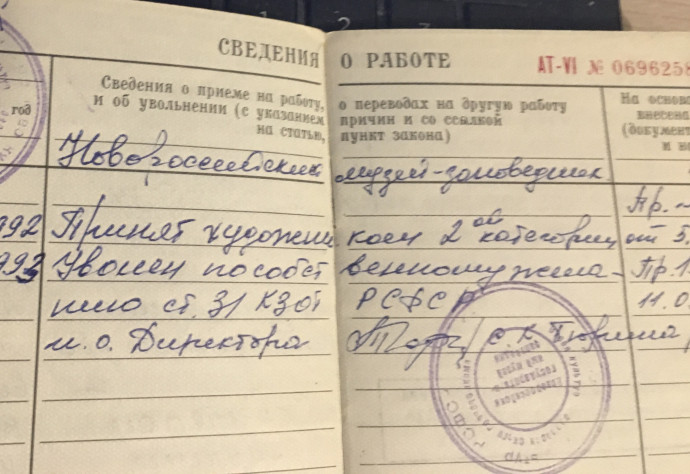 СВЕДЕНИЯ О РАБОТЕ
АТ-VI № 0696258
год
Сведения о приеме на работу, о переводах на другую работу
и об увольнении (с указанием причин и со ссылкой
на статью, пункт закона)
На основа
внесена
(документ
и н
Новороссийский музей-заповедник
992 Принят художни ком 2ой категории Пр.
от 5.
993 Уволен по собст венному жела- Пр. 1
нию ст. 31 КЗОТ РСФСР 11.0
и. о. Директора
РСФСР